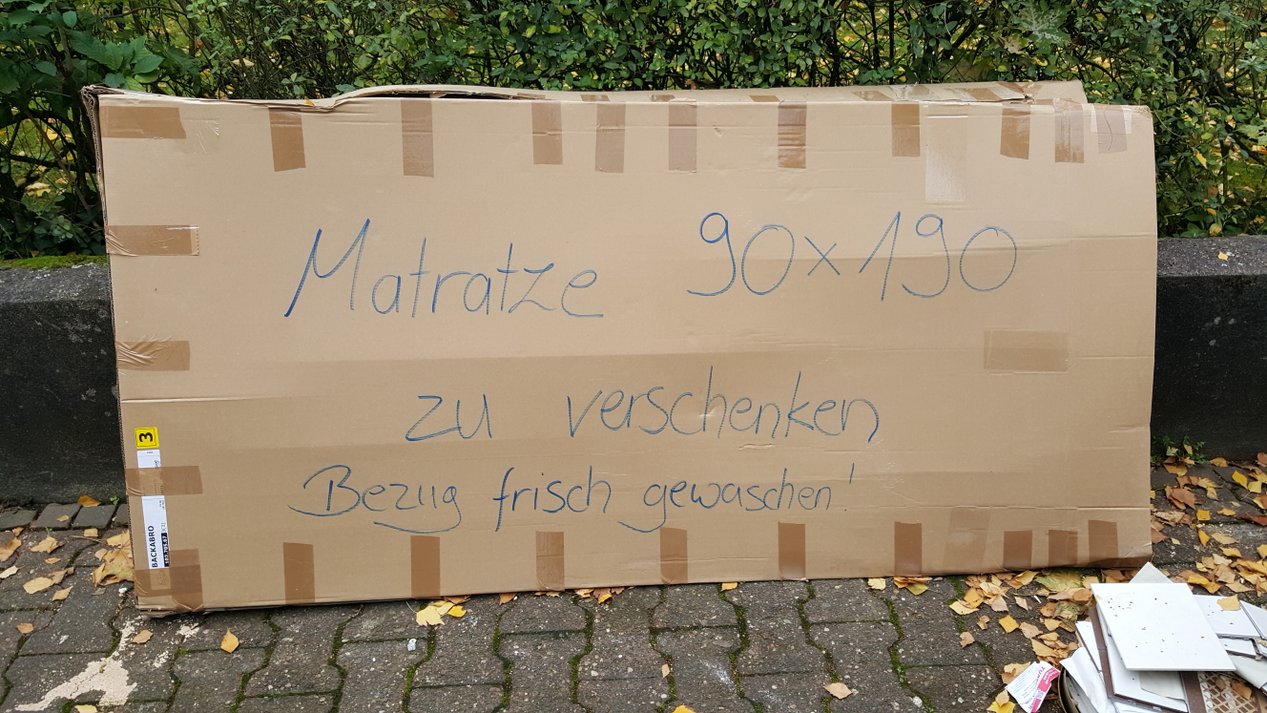 Matratze 90x190
zu verschenken
Bezug frisch gewaschen!
3
BACKABRO